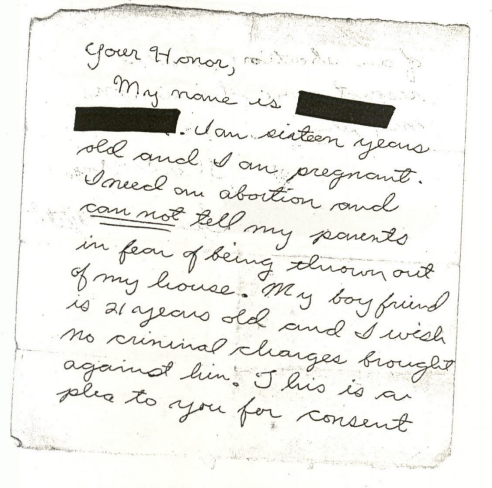 Your Honor,
My name is
. I am sixteen years
old and I am pregnant.
I need an abortion and
can not tell my parents
in fear of being thrown out
of my house. My boyfriend
is 21 years old and I wish
no criminal charges brought
against him. This is a
plea to you for consent